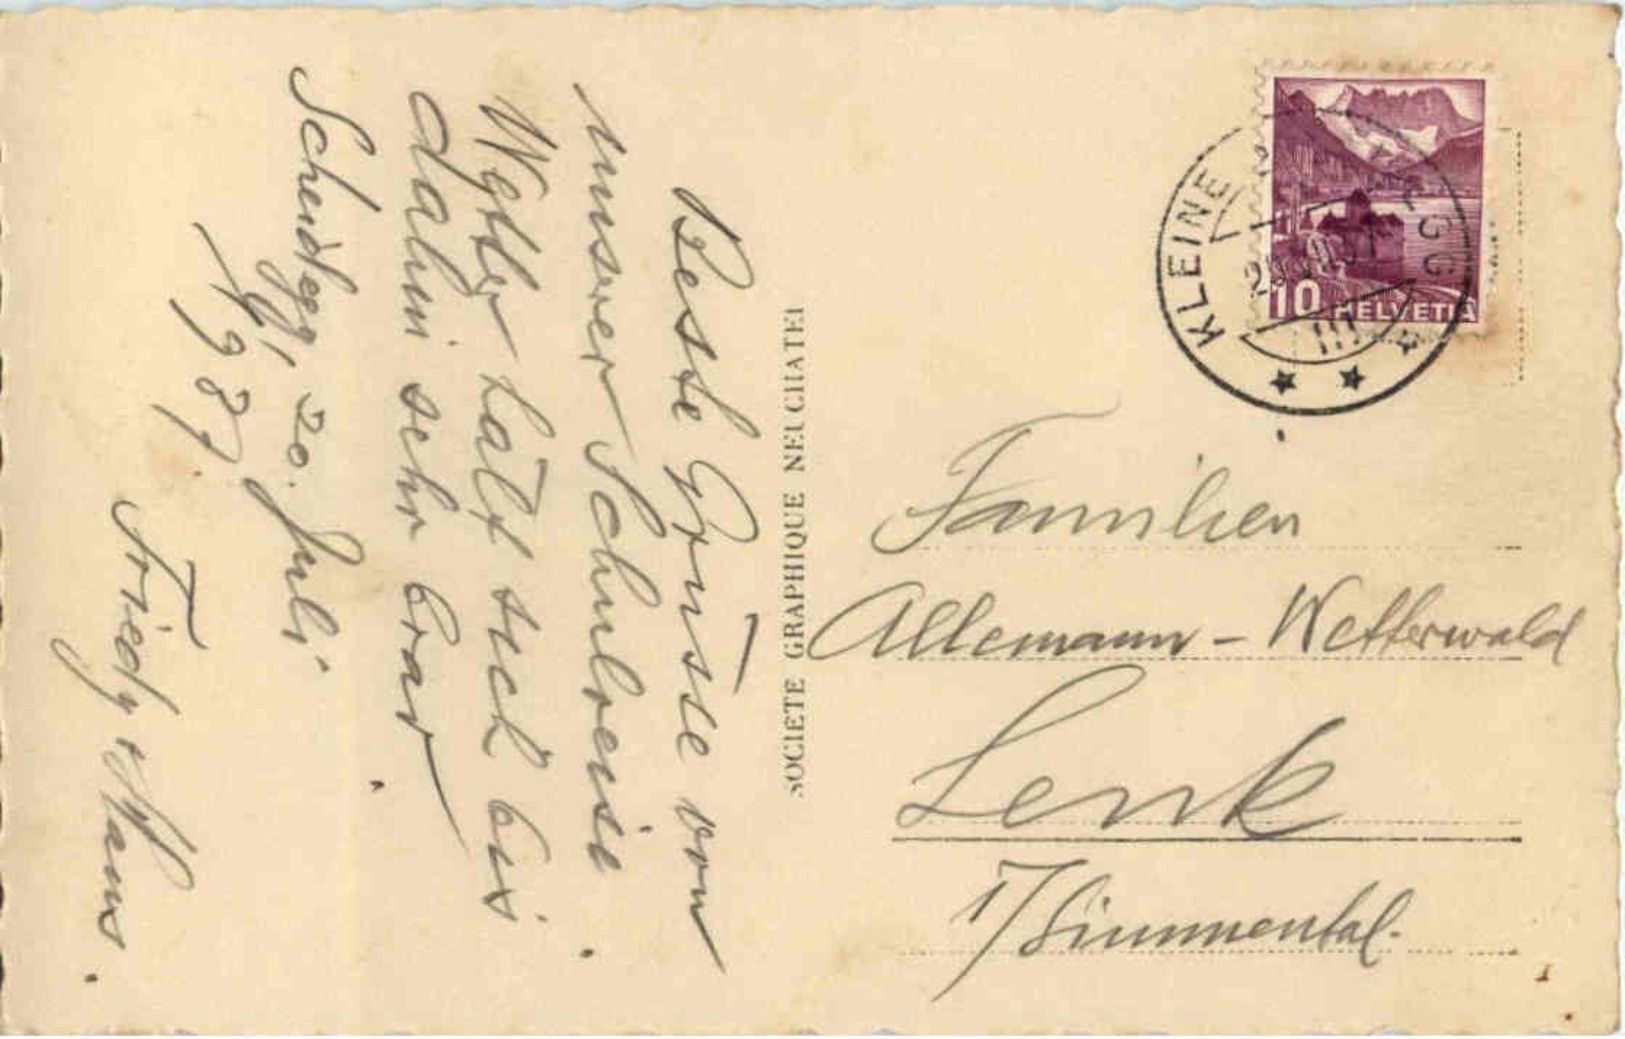 Beste Grüsse von
unserer Schulreise.
Wetter hält sich bis
dahin sehr brav.
Scheidegg, 20. Juli
1937.
Friedy + Hans.
SOCIÉTÉ GRAPHIQUE NEUCHATEL
KLEINE
10 HELVETIA
Familien
Allemann - Wetterwald
Lenk
i/Simmental.